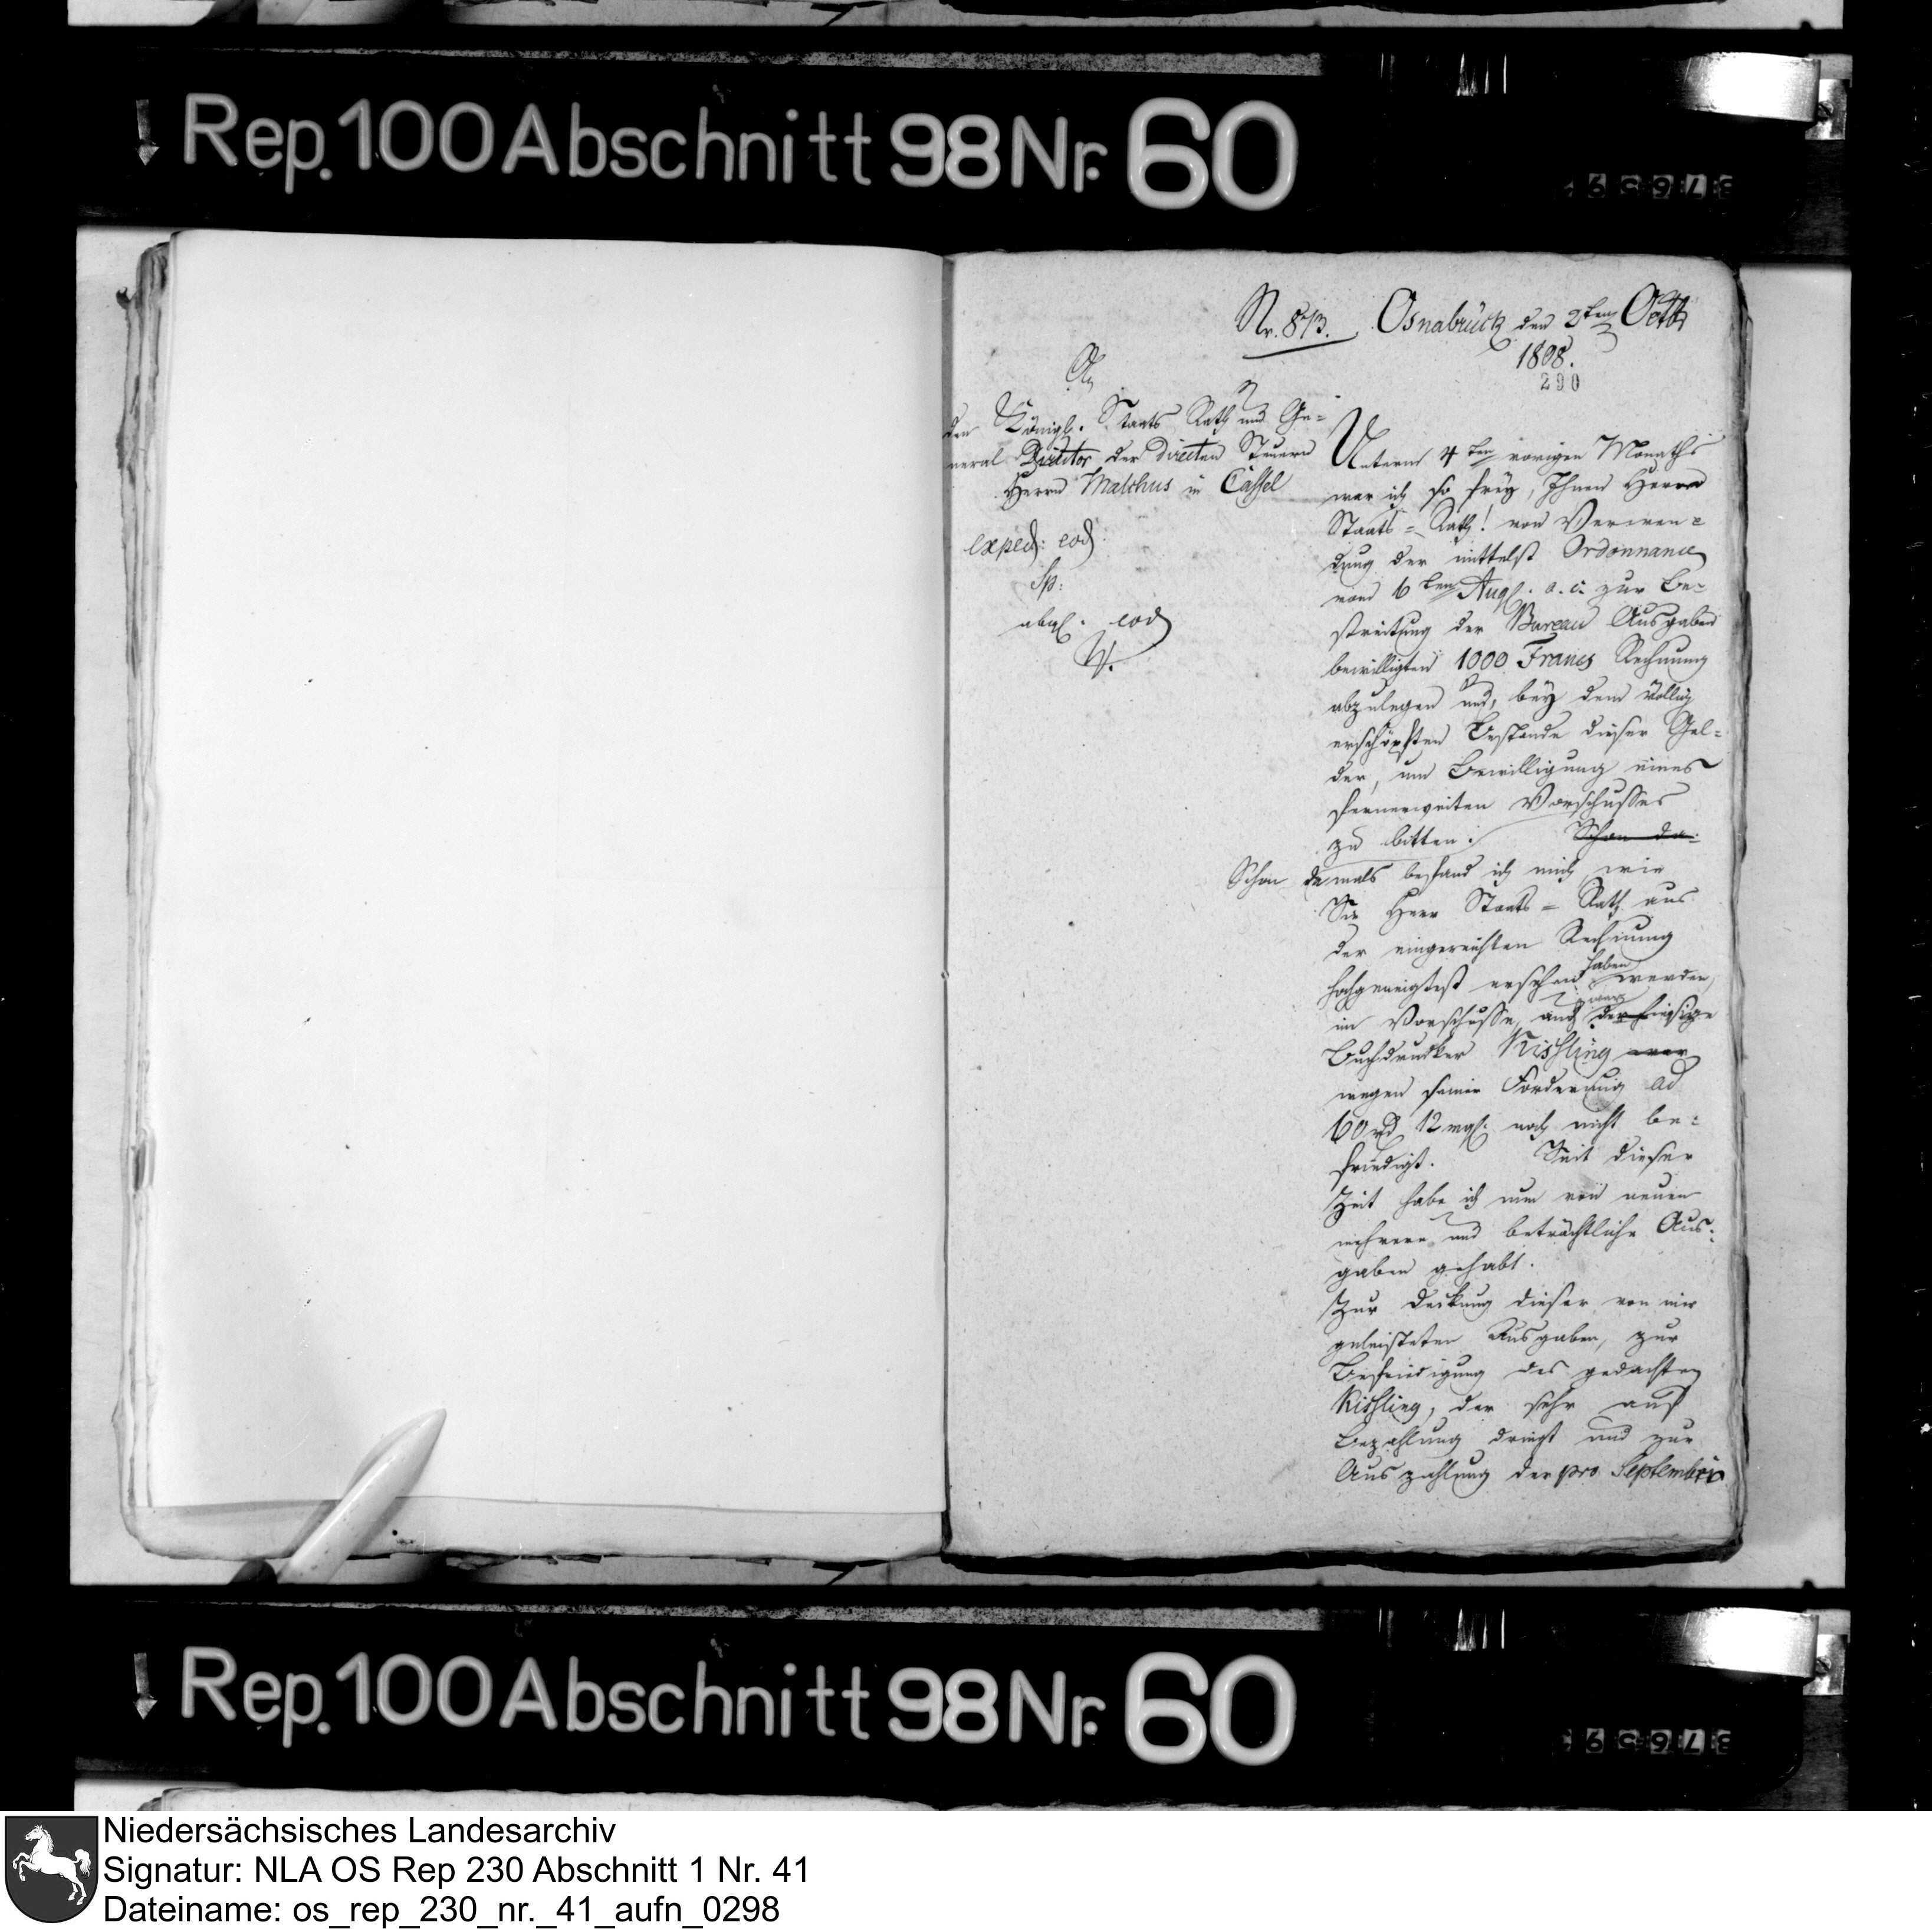 Rep. 100 Abschnitt 98 Nr. 60
Nr. 873. Osnabrück den 2ten Octb
1808.
290
An
den Königl. Staats Rath und Ge=
neral Director der directen Steuern
Herrn Malchus in Cassel
exped: eod.
Sp:
abgs. eod
Unterm 4ten vorigen Monaths
war ich so frey, Ihnen Herrn
Staats=Rath! von Verwen=
dung der mittelst Ordonnance
vom 6ten Aug. a. c. zur Be=
streitung der Bureau Ausgaben
bewilligten 1000 Francs Rechnung
abzulegen und, bey dem völlig
erschöpften Bestande dieser Gel=
der, um Bewilligung eines
fernerweiten Vorschusses
zu bitten. Schon da=
Schon damals befand ich mich, wie
Sie Herr Staats=Rath aus
der eingereichten Rechnung
hochgeneigtest ersehen haben werden,
im Vorschusse, auch war der hiesige
Buchdrucker Kissling war
wegen seiner Forderung ad
60 rd 12 mgs. noch nicht be=
friedigt. Seit dieser
Zeit habe ich nun von neuen
mehrere und beträchtliche Aus=
gaben gehabt.
Zur Deckung dieser von mir
geleisteten Ausgaben, zur
Befriedigung des gedachten
Kissling, der sehr auf
Bezahlung dringt und zur
Auszahlung der pro September
Rep. 100 Abschnitt 98 Nr. 60
Niedersächsisches Landesarchiv
Signatur: NLA OS Rep 230 Abschnitt 1 Nr. 41
Dateiname: os_rep_230_nr._41_aufn_0298